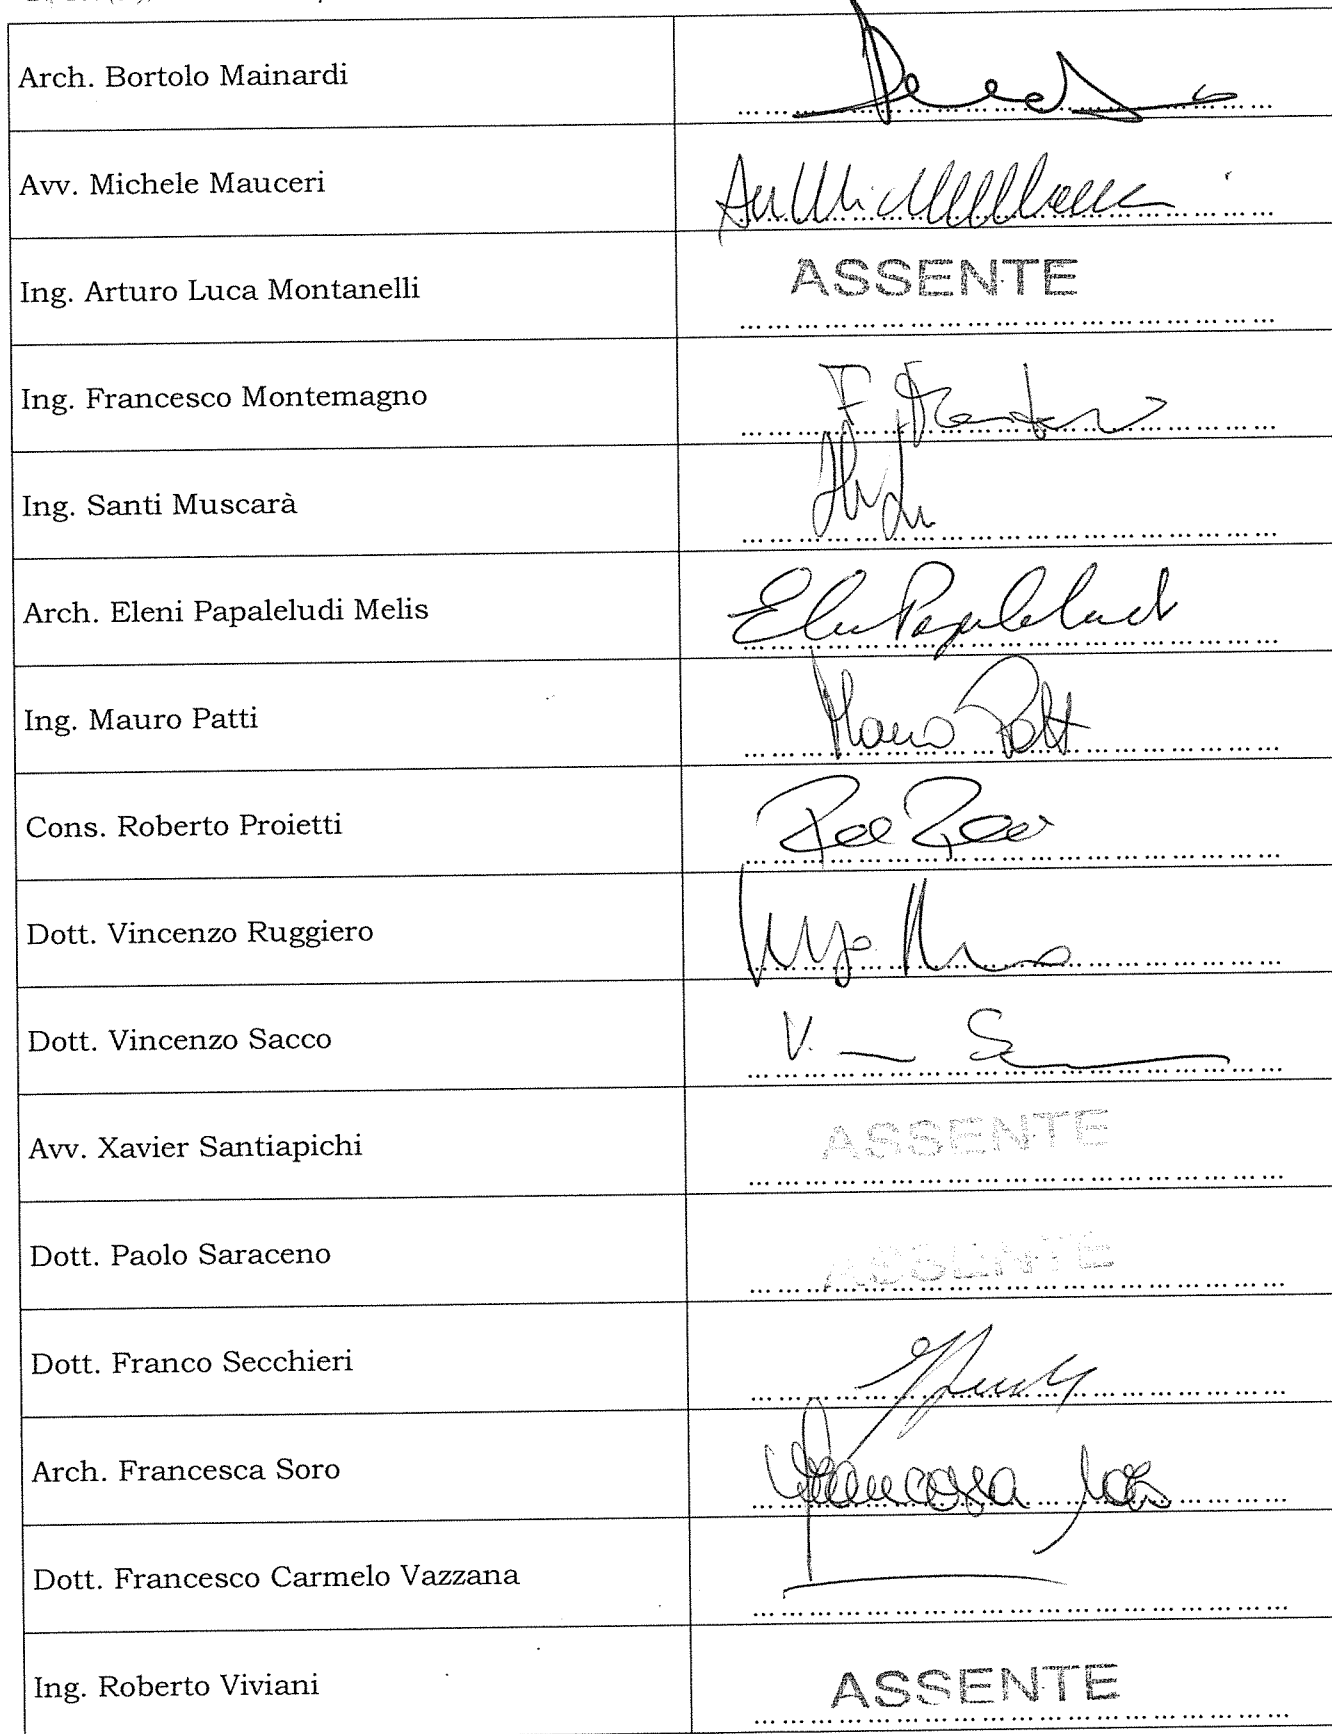 Arch. Bortolo Mainardi
Avv. Michele Mauceri
Ing. Arturo Luca Montanelli ASSENTE
Ing. Francesco Montemagno
Ing. Santi Muscarà
Arch. Eleni Papaleludi Melis
Ing. Mauro Patti Mauro Patti
Cons. Roberto Proietti
Dott. Vincenzo Ruggiero
Dott. Vincenzo Sacco
Avv. Xavier Santiapichi ASSENTE
Dott. Paolo Saraceno ASSENTE
Dott. Franco Secchieri
Arch. Francesca Soro Francesca Soro
Dott. Francesco Carmelo Vazzana
Ing. Roberto Viviani ASSENTE